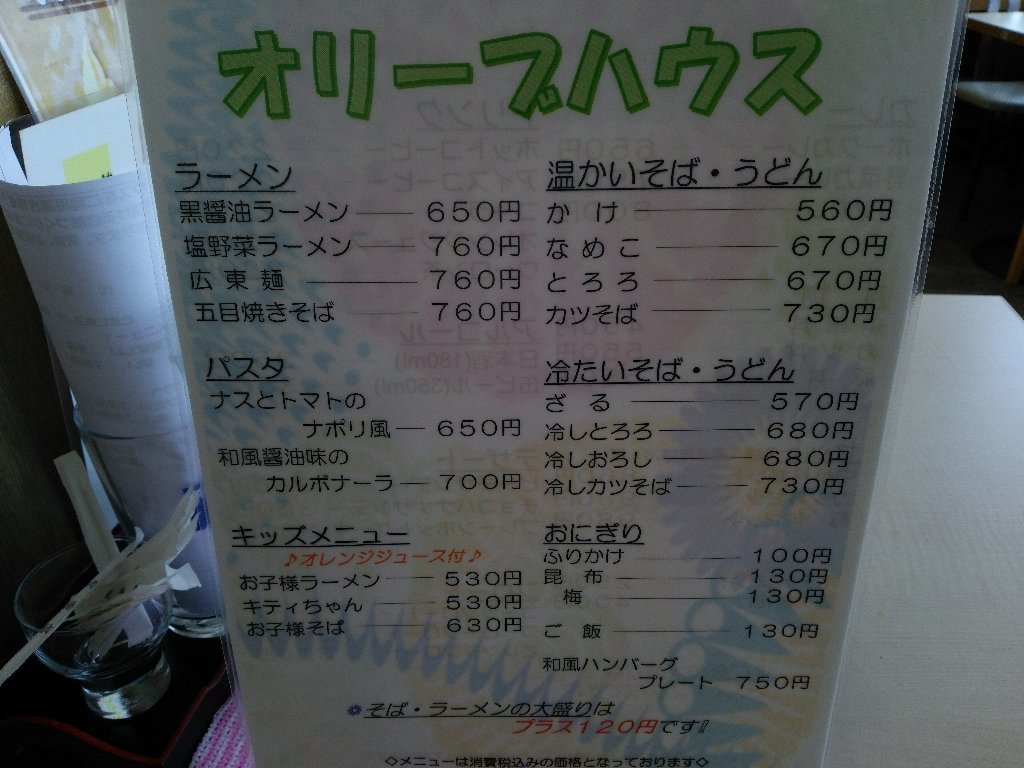 オリーブハウス
ラーメン
黒醤油ラーメン 650円
塩野菜ラーメン 760円
広東麺 760円
五目焼きそば 760円
パスタ
ナスとトマトの
ナポリ風 650円
和風醤油味の
カルボナーラ 700円
キッズメニュー
♪オレンジジュース付♪
お子様ラーメン 530円
キティちゃん 530円
お子様そば 630円
温かいそば・うどん
かけ 560円
なめこ 670円
とろろ 670円
カツそば 730円
冷たいそば・うどん
ざる 570円
冷しとろろ 680円
冷しおろし 680円
冷しカツそば 730円
おにぎり
ふりかけ 100円
昆布 130円
梅 130円
ご飯 130円
和風ハンバーグ
プレート 750円
そば・ラーメンの大盛りは
プラス120円です!!
◇メニューは消費税込みの価格となっております◇